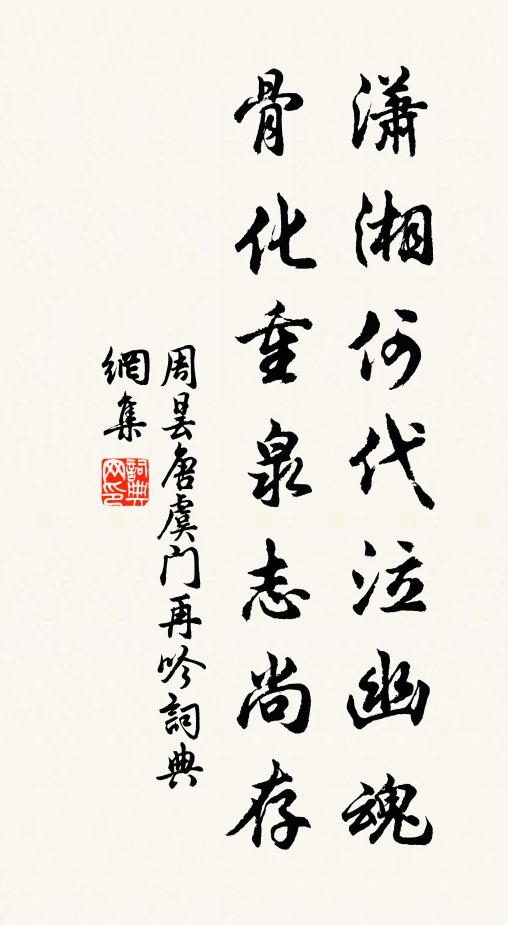 瀟湘何代泣幽魂
骨化重泉志尚存
周曇唐虞門再吟詞典
網集
詞典
网印